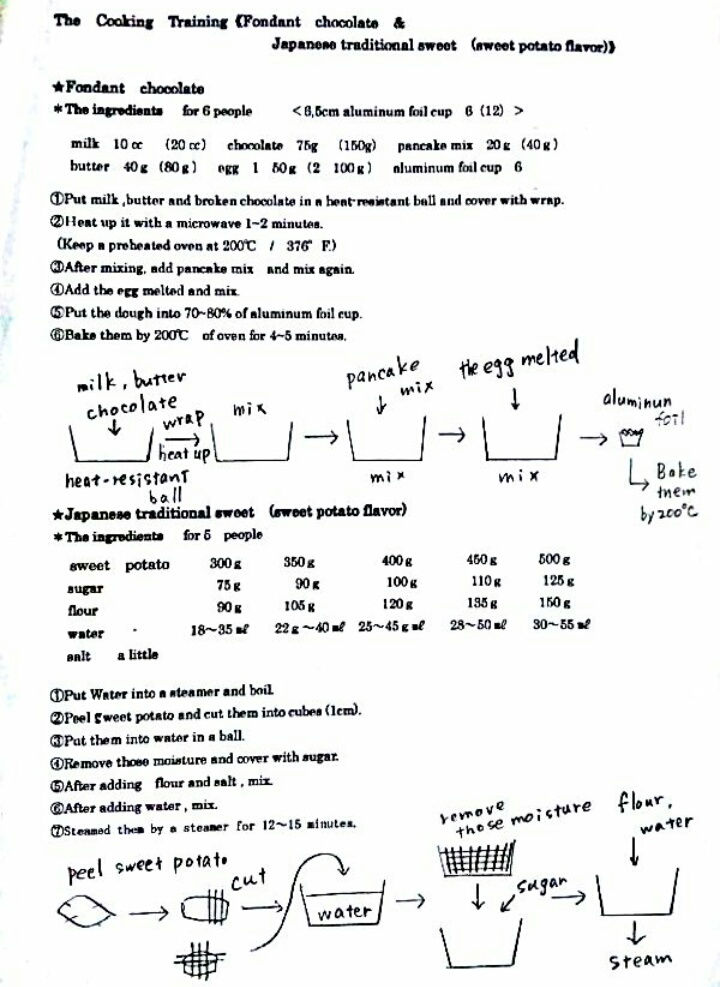 The Cooking Training《Fondant chocolate &
Japanese traditional sweet (sweet potato flavor)》
★Fondant chocolate
*The ingredients for 6 people <6,5cm aluminum foil cup 6 (12) >
milk 10 cc (20 cc) chocolate 75g (150g) pancake mix 20g (40g)
butter 40g (80g) egg 1 50g (2 100g) aluminum foil cup 6
①Put milk ,butter and broken chocolate in a heat-resistant ball and cover with wrap.
②Heat up it with a microwave 1~2 minutes.
(Keep a preheated oven at 200℃ / 376° F.)
③After mixing, add pancake mix and mix again.
④Add the egg melted and mix.
⑤Put the dough into 70~80% of aluminum foil cup.
⑥Bake them by 200℃ of oven for 4~5 minutes.
milk, butter
chocolate
wrap
heat up
heat-resistant
ball
mix
pancake
mix
mix
the egg melted
mix
aluminun
foil
Bake
them
by 200°C
★Japanese traditional sweet (sweet potato flavor)
*The ingredients for 5 people
sweet potato 300g 350g 400g 450g 500g
sugar 75g 90g 100g 110g 125g
flour 90g 105g 120g 135g 150g
water 18~35㎖ 22g~40㎖ 25~45g㎖ 28~50㎖ 30~55㎖
salt a little
①Put Water into a steamer and boil.
②Peel sweet potato and cut them into cubes (1cm).
③Put them into water in a ball.
④Remove those moisture and cover with sugar.
⑤After adding flour and salt , mix.
⑥After adding water , mix.
⑦Steamed them by a steamer for 12~15 minutes.
peel sweet potato
cut
water
remove
those moisture
sugar
flour,
water
steam